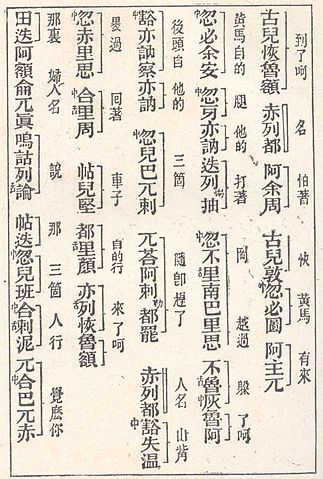 到了呵 名 怕著 快 黃馬 有來
古兒恢魯額 赤列都 阿余周 古兒敦中忽必圖 阿主兀
黃馬自的 腿 他的 打著 岡 越過 躱了呵
中忽必余安 中忽牙亦訥 迭列抽 中忽不里南巴里思 不魯灰魯阿
後頭自 他的 三箇 隨即趕了 人名 山觜
豁亦訥察亦訥 中忽兒巴兀剌 兀荅阿剌都罷 赤列都豁失温
過 回著 車子 自的行 來了呵
中忽赤里思 中合里周 帖兒堅都里顏 亦列恢魯額
那裏 婦人名 說 那 三箇 人行 覺麼你
田迭阿額侖兀眞嗚詁列論 帖迭中忽兒班中合剌泥 兀中合巴兀赤